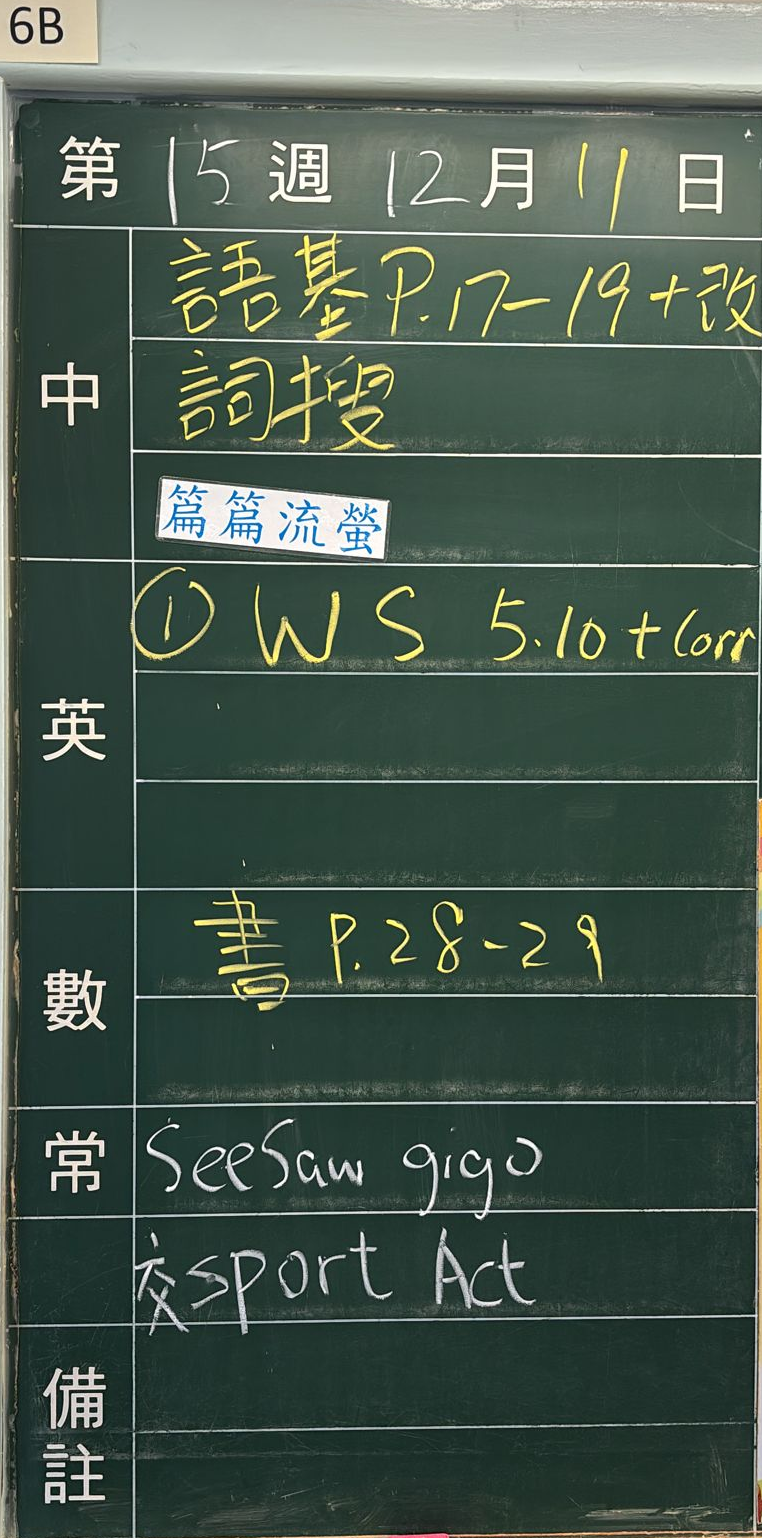 6B
第 15 週 12 月 11 日
中
語基 P.17-19+改
詞搜
篇篇流螢
英
① WS 5.10+Corr
數
書 P.28-29
常
SeeSaw gigo
交sport Act
備註